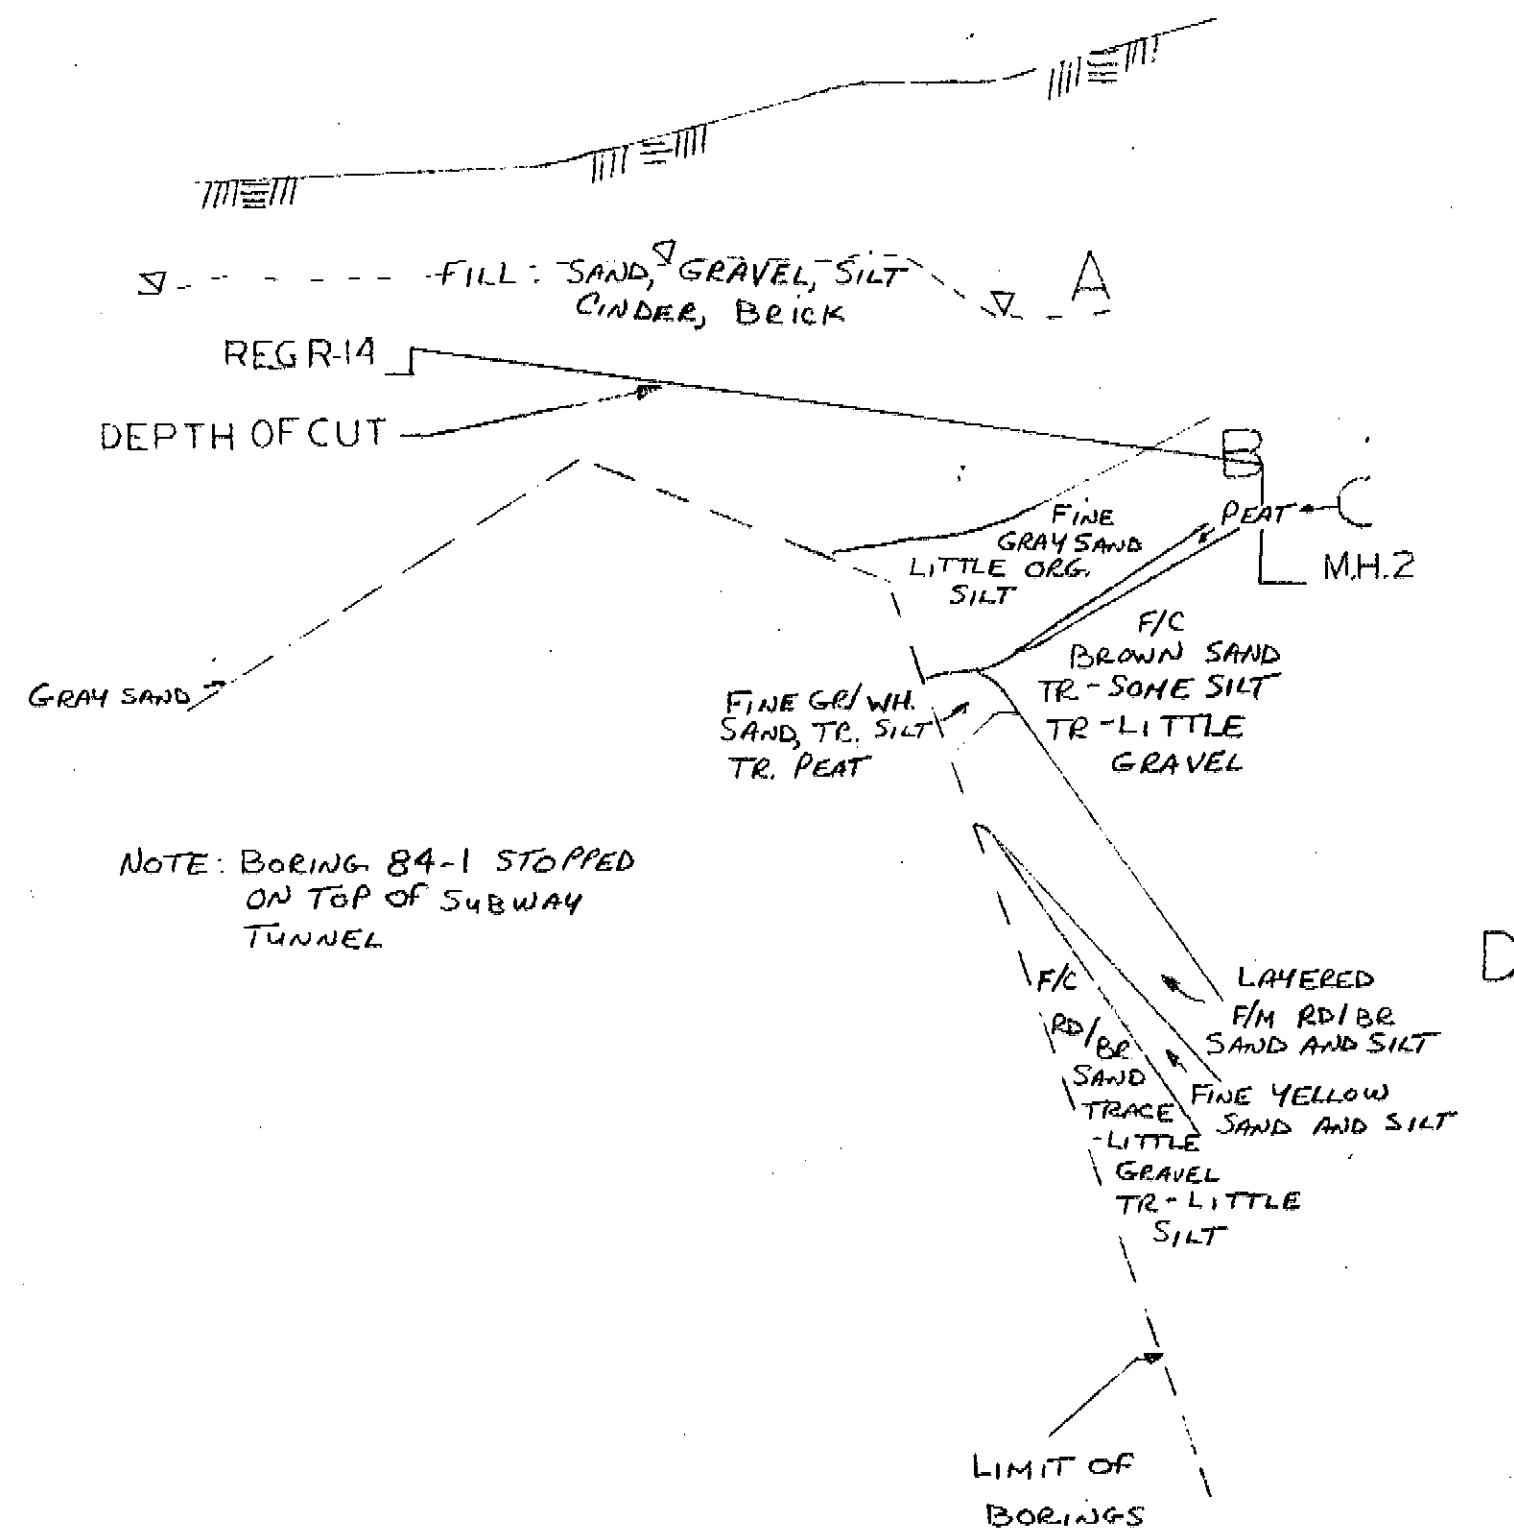 FILL: SAND, GRAVEL, SILT
CINDER, BRICK
A
REG R-14
DEPTH OF CUT
B
PEAT
C
M.H.2
FINE
GRAY SAND
LITTLE ORG.
SILT
F/C
BROWN SAND
TR-SOME SILT
TR-LITTLE
GRAVEL
GRAY SAND
FINE GR/WH.
SAND, TR. SILT
TR. PEAT
NOTE: BORING 84-1 STOPPED
ON TOP OF SUBWAY
TUNNEL
D
LAYERED
F/M RD/BR
SAND AND SILT
FINE YELLOW
SAND AND SILT
F/C
RD/BR
SAND
TRACE
-LITTLE
GRAVEL
TR-LITTLE
SILT
LIMIT OF
BORINGS